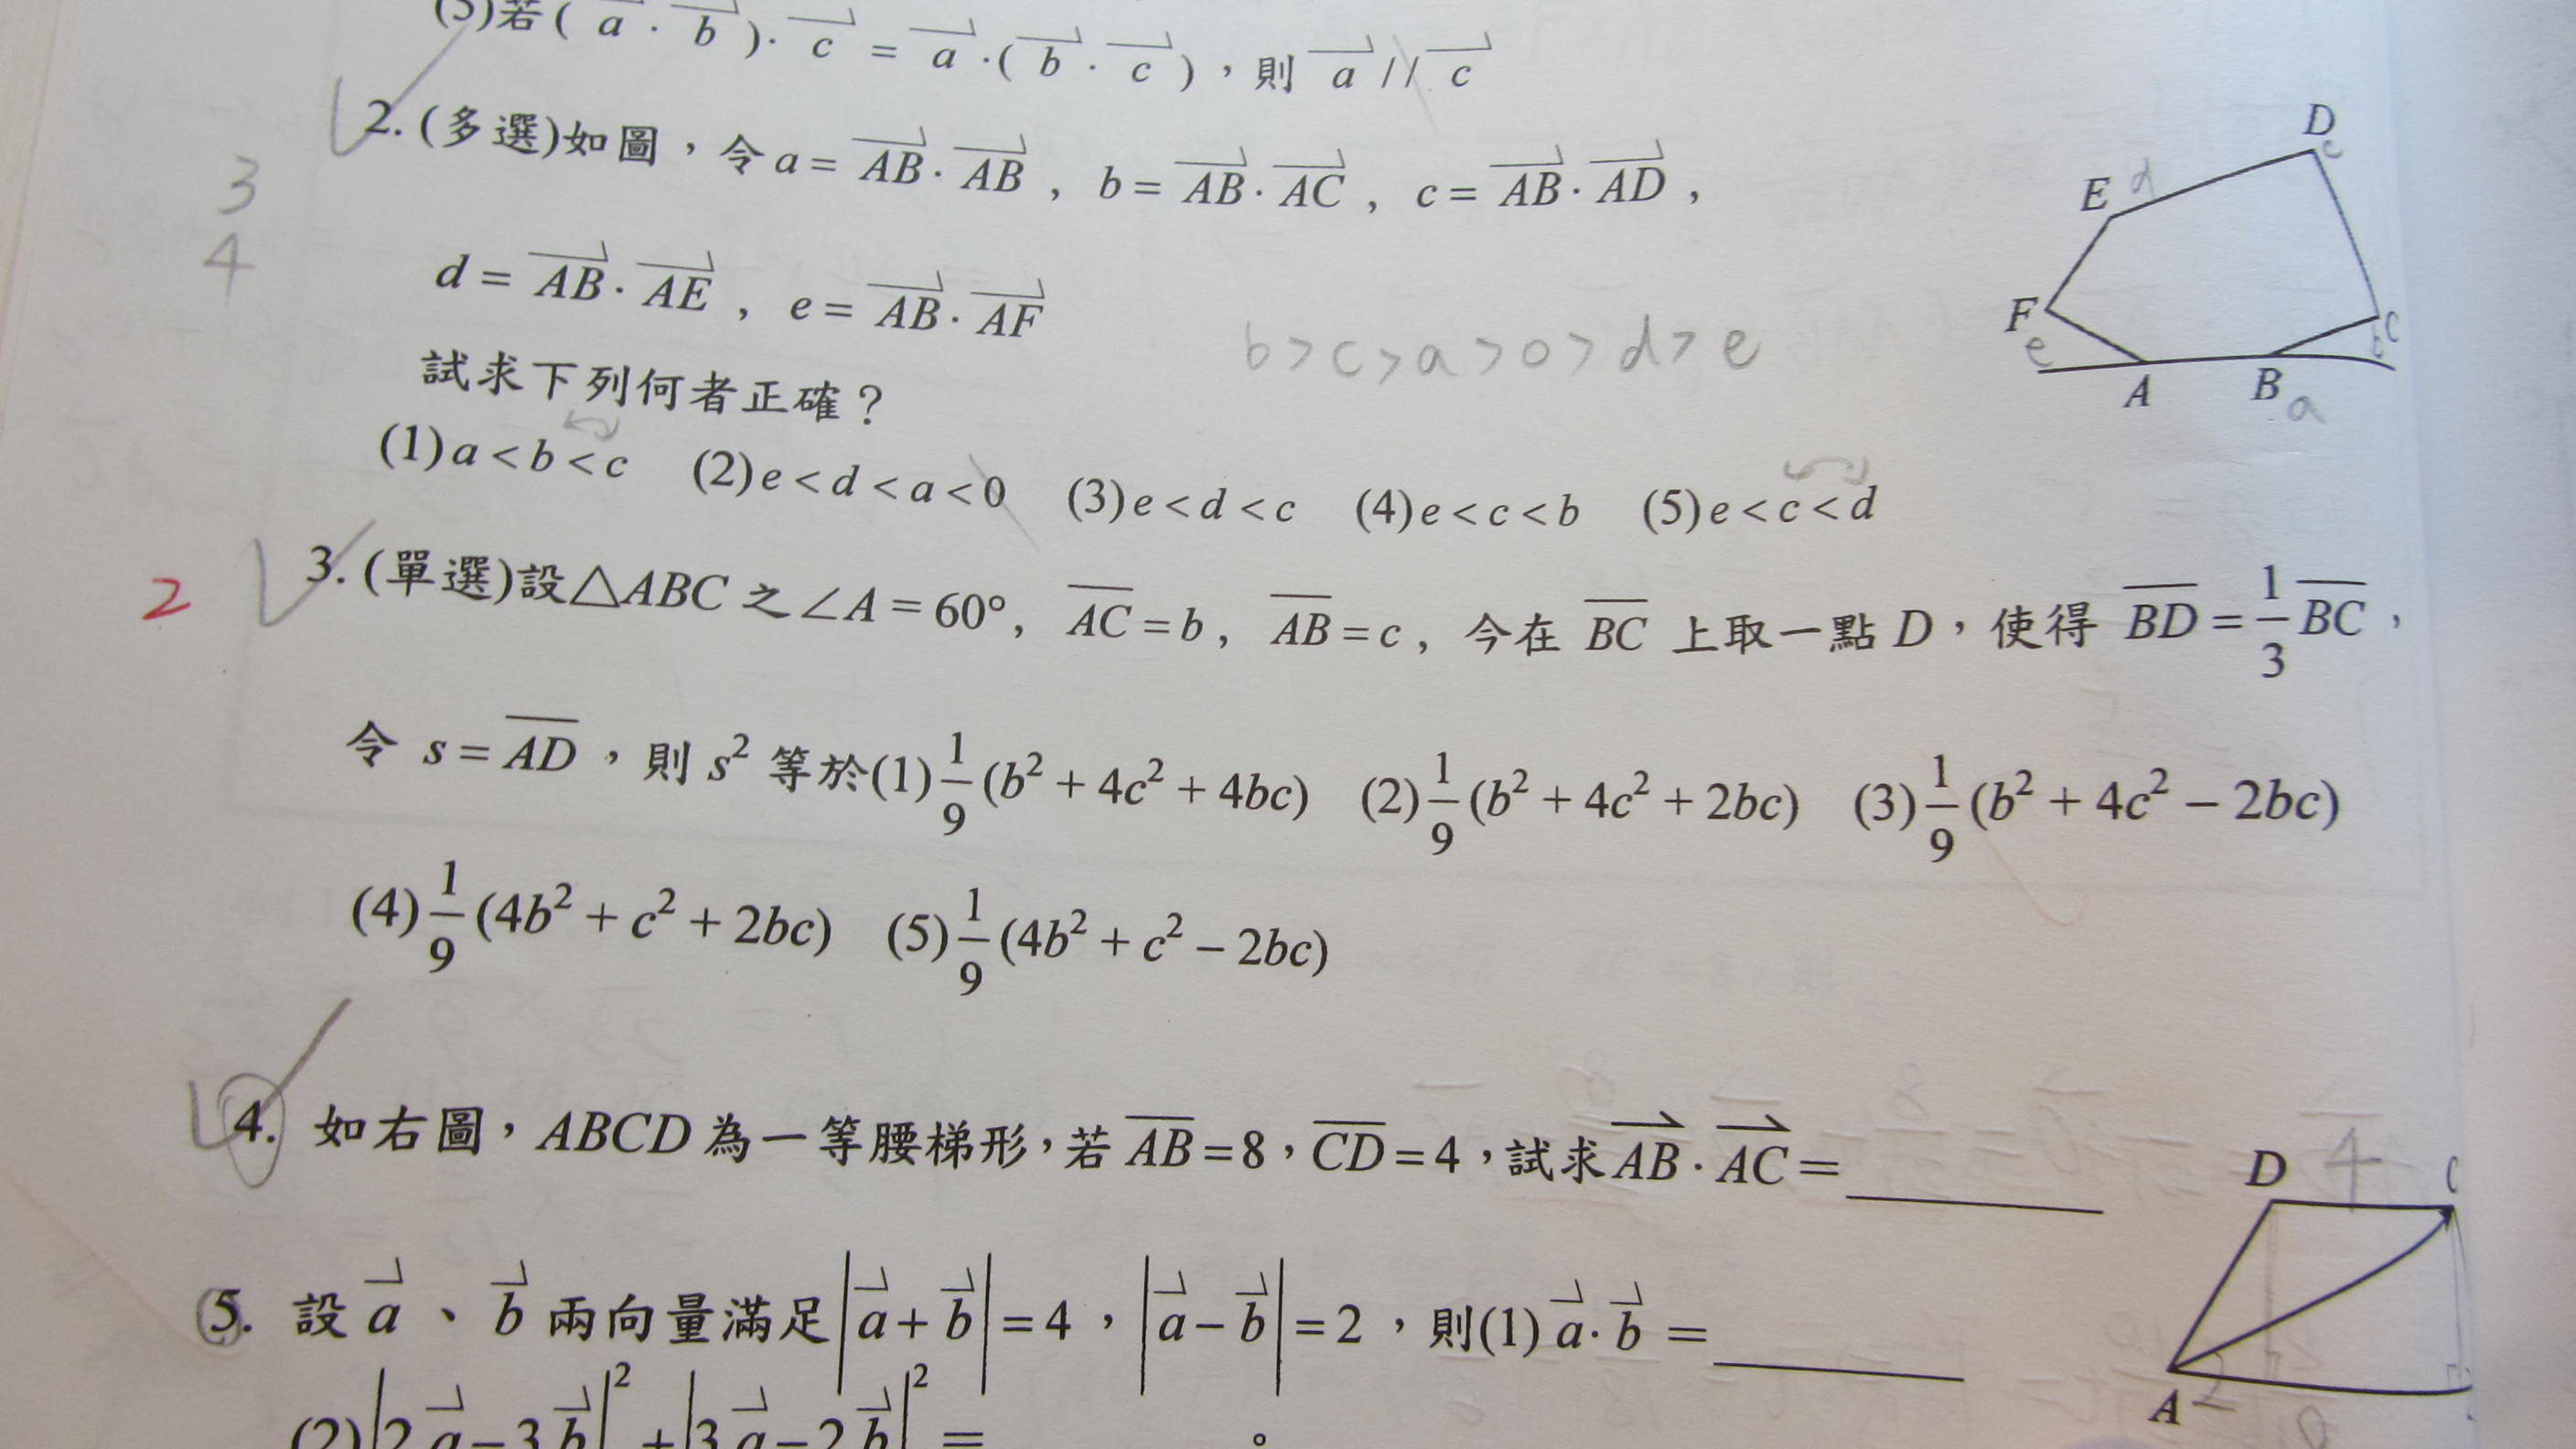 (5)若( a · b )· c = a ·( b · c ),則 a // c
2. (多選)如圖,令 a = AB · AB , b = AB · AC , c = AB · AD ,
d = AB · AE , e = AB · AF
試求下列何者正確?
b > c > a > 0 > d > e
(1) a < b < c (2) e < d < a < 0 (3) e < d < c (4) e < c < b (5) e < c < d
3
4
D
c
E
d
F
e
C
b
A
B
a
2
3. (單選)設△ABC 之∠A = 60°, AC = b, AB = c, 今在 BC 上取一點 D,使得 BD = 1/3 BC,
令 s = AD,則 s² 等於(1) 1/9 (b² + 4c² + 4bc) (2) 1/9 (b² + 4c² + 2bc) (3) 1/9 (b² + 4c² − 2bc)
(4) 1/9 (4b² + c² + 2bc) (5) 1/9 (4b² + c² − 2bc)
4. 如右圖,ABCD 為一等腰梯形,若 AB = 8,CD = 4,試求 AB · AC = ____
D
4
C
A
2
5. 設 a、b 兩向量滿足 |a + b| = 4,|a − b| = 2,則(1) a · b = ____
(2) |2a − 3b|² + |3a − 2b|² = ____。